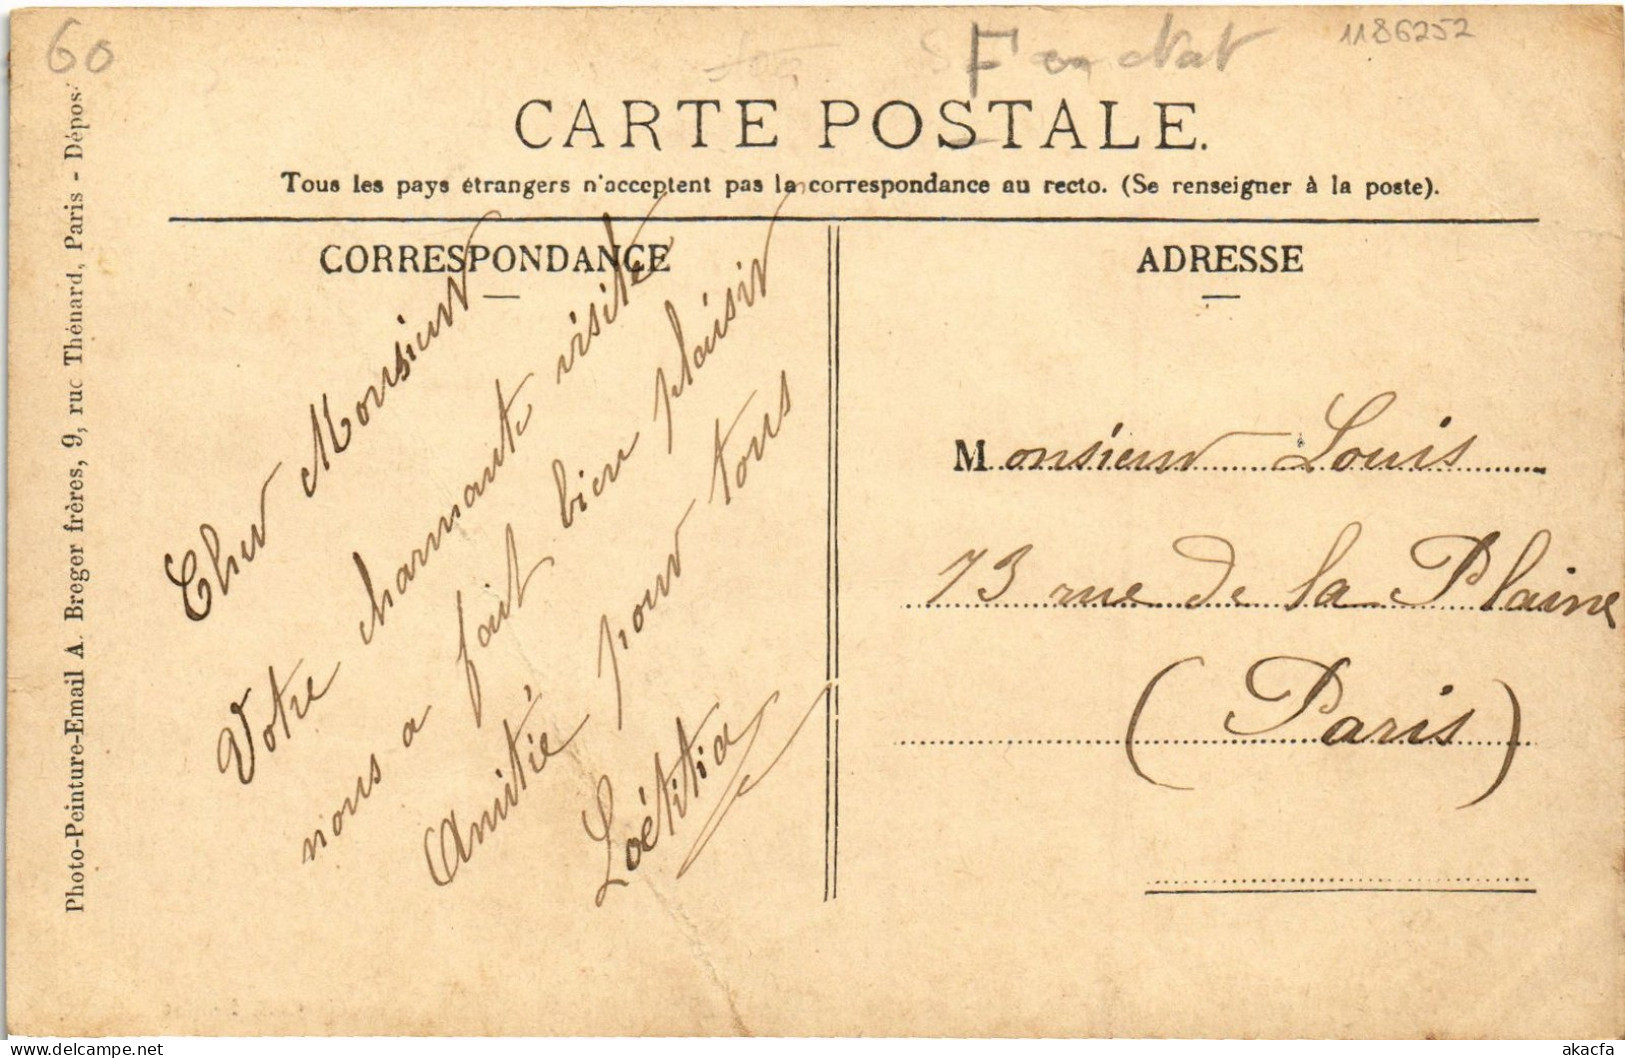 60
1186252
CARTE POSTALE.
Tous les pays étrangers n'acceptent pas la correspondance au recto. (Se renseigner à la poste).
CORRESPONDANCE
Cher Monsieur
Votre charmante visite
nous a fait bien plaisir
Amitié pour tous
Loétitia
ADRESSE
Monsieur Louis
73 rue de la Plaine
(Paris)
Photo-Peinture-Email A. Breger frères, 9, rue Thénard, Paris - Dépos
akacfa